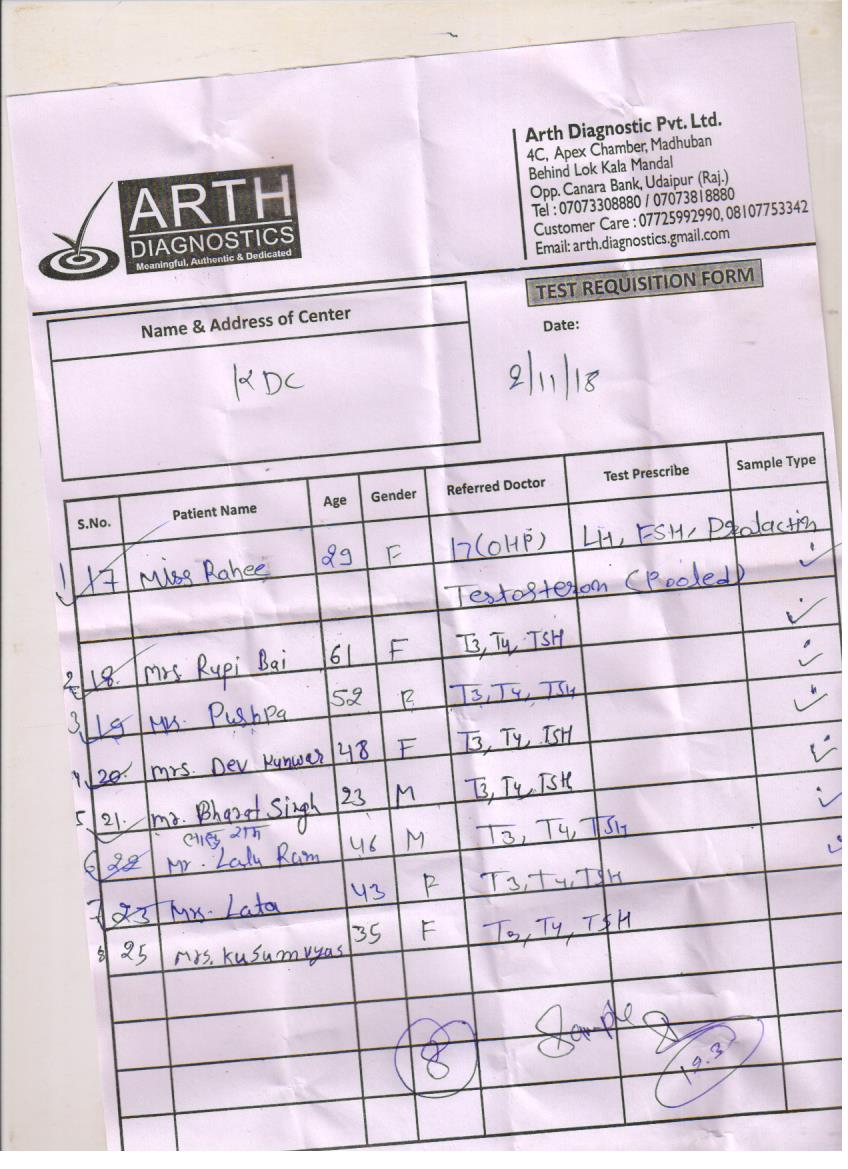 Arth Diagnostic Pvt. Ltd.
4C, Apex Chamber, Madhuban
Behind Lok Kala Mandal
Opp. Canara Bank, Udaipur (Raj.)
Tel : 07073308880 / 07073818880
Customer Care : 07725992990, 08107753342
Email: arth.diagnostics.gmail.com
ARTH
DIAGNOSTICS
Meaningful, Authentic & Dedicated
TEST REQUISITION FORM
Name & Address of Center
Date:
KDC
2/11/18
S.No. Patient Name Age Gender Referred Doctor Test Prescribe Sample Type
1 17 Miss Rahee 29 F 17(OHP) LH, FSH, Prolactin
Testosteron (Pooled)
2 18. Mrs Rupi Bai 61 F T3, T4, TSH
3 19 Mrs. Pushpa 52 F T3, T4, TSH
4 20. Mrs. Dev Kunwar 48 F T3, T4, TSH
5 21. Mr. Bharat Singh 23 M T3, T4, TSH
लालू राम
6 22 Mr. Lalu Ram 46 M T3, T4, TSH
7 23 Mrs. Lata 43 F T3, T4, TSH
8 25 Mrs. Kusum vyas 35 F T3, T4, TSH
8 Sample 8
19.3